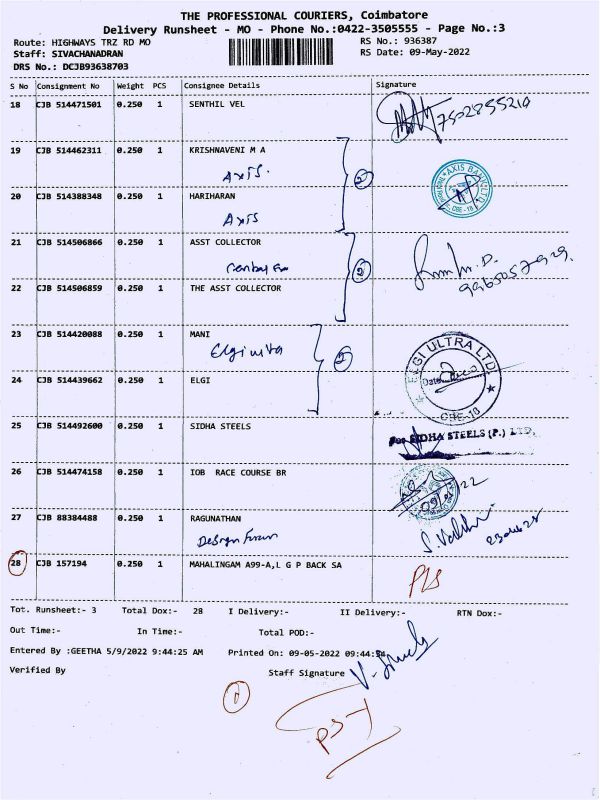 THE PROFESSIONAL COURIERS, Coimbatore
Delivery Runsheet - MO - Phone No.:0422-3505555 - Page No.:3
Route: HIGHWAYS TRZ RD MO RS No.: 936387
Staff: SIVACHANADRAN RS Date: 09-May-2022
DRS No.: DCJB93638703
S No Consignment No Weight PCS Consignee Details Signature
18 CJB 514471501 0.250 1 SENTHIL VEL
7502855210
19 CJB 514462311 0.250 1 KRISHNAVENI M A
AXIS. 2 AXIS BANK LTD
CBE-18
20 CJB 514388348 0.250 1 HARIHARAN
AXIS
21 CJB 514506866 0.250 1 ASST COLLECTOR
2
22 CJB 514506859 0.250 1 THE ASST COLLECTOR
23 CJB 514420088 0.250 1 MANI
Elgi ultra 2 ELGI ULTRA LTD
Date
CBE-18
24 CJB 514439662 0.250 1 ELGI
25 CJB 514492600 0.250 1 SIDHA STEELS
For SIDHA STEELS (P.) LTD.
26 CJB 514474158 0.250 1 IOB RACE COURSE BR
27 CJB 88384488 0.250 1 RAGUNATHAN
Design
28 CJB 157194 0.250 1 MAHALINGAM A99-A,L G P BACK SA
Tot. Runsheet:- 3 Total Dox:- 28 I Delivery:- II Delivery:- RTN Dox:-
Out Time:- In Time:- Total POD:-
Entered By :GEETHA 5/9/2022 9:44:25 AM Printed On: 09-05-2022 09:44:54
Verified By Staff Signature